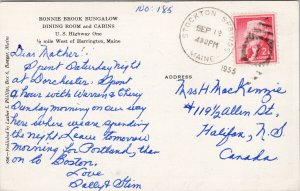 No: 185
BONNIE BROOK BUNGALOW
DINING ROOM AND CABINS
U. S. Highway One
½ mile West of Harrington, Maine
Dear Mother:
Spent Saturday night
at Dorchester. Spent
hour with Warren & Chevy
Sunday morning on our way
here where we are spending
the night. Leave tomorrow
morning for Portland, then
on to Boston.
Love
Sally & Stim
STOCKTON SPRINGS
SEP
4 30 PM
1955
MAINE
ADDRESS
Mrs H MacKenzie
#119½ Allen St.
Halifax, N.S.
Canada
Published by Luther S. Phillips, Box 6, Bangor, Maine